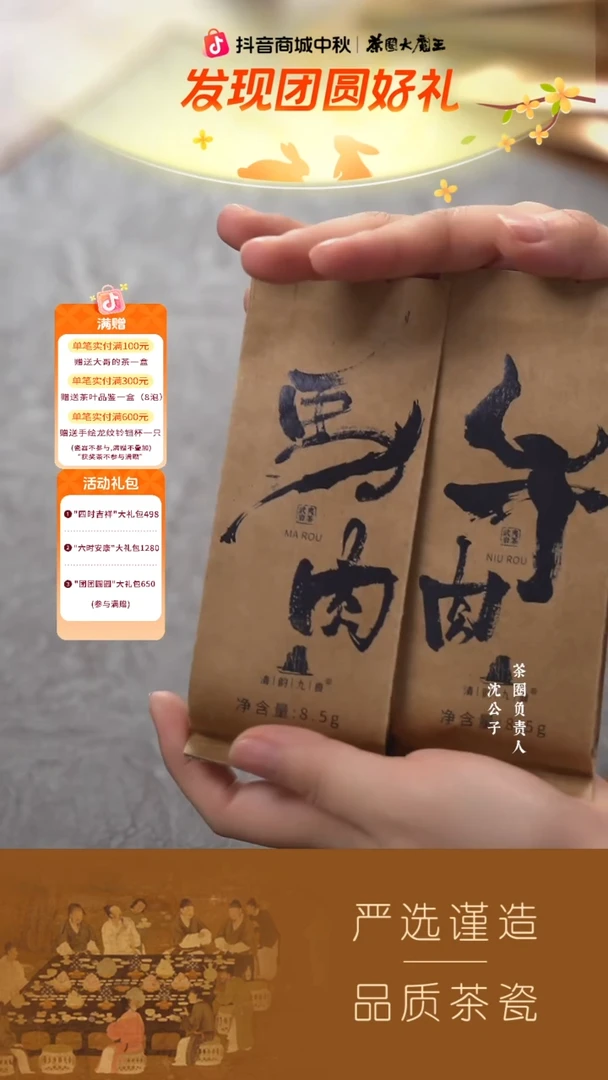 抖音商城中秋 茶圈大魔王
发现团圆好礼
满赠
单笔实付满100元
赠送大哥的茶一盒
单笔实付满300元
赠送茶叶品鉴一盒（8泡）
单笔实付满600元
赠送手绘龙纹铃铛杯一只
(瓷器不参与,满赠不叠加)
"获奖茶不参与满赠"
活动礼包
1 "四时吉祥"大礼包498
2 "六时安康"大礼包1280
3 "团团圆圆"大礼包650
(参与满赠)
馬肉
MA ROU
净含量:8.5g
牛肉
NIU ROU
净含量:8.5g
茶圈负责人
沈公子
严选谨造
品质茶瓷